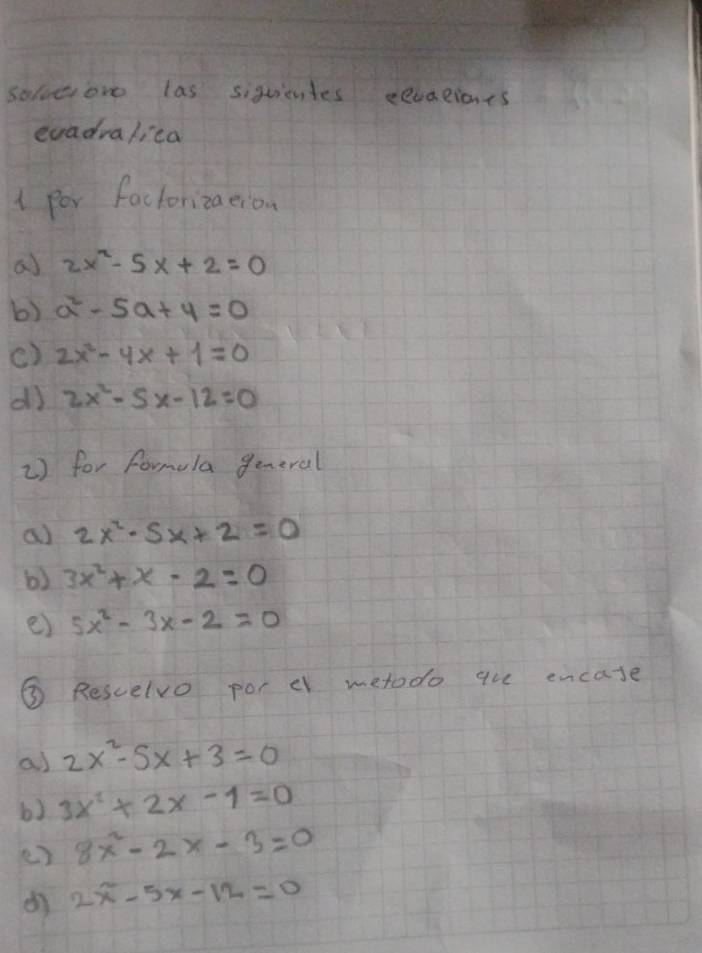 soluciono las siguientes ecuaciones
cuadratica
1 por factorizacion
a) 2x² - 5x + 2 = 0
b) a² - 5a + 4 = 0
c) 2x² - 4x + 1 = 0
d) 2x² - 5x - 12 = 0
2) for formula general
a) 2x² - 5x + 2 = 0
b) 3x² + x - 2 = 0
c) 5x² - 3x - 2 = 0
③ Resuelvo por el metodo que encaje
a) 2x² - 5x + 3 = 0
b) 3x² + 2x - 1 = 0
c) 8x² - 2x - 3 = 0
d) 2x² - 5x - 12 = 0